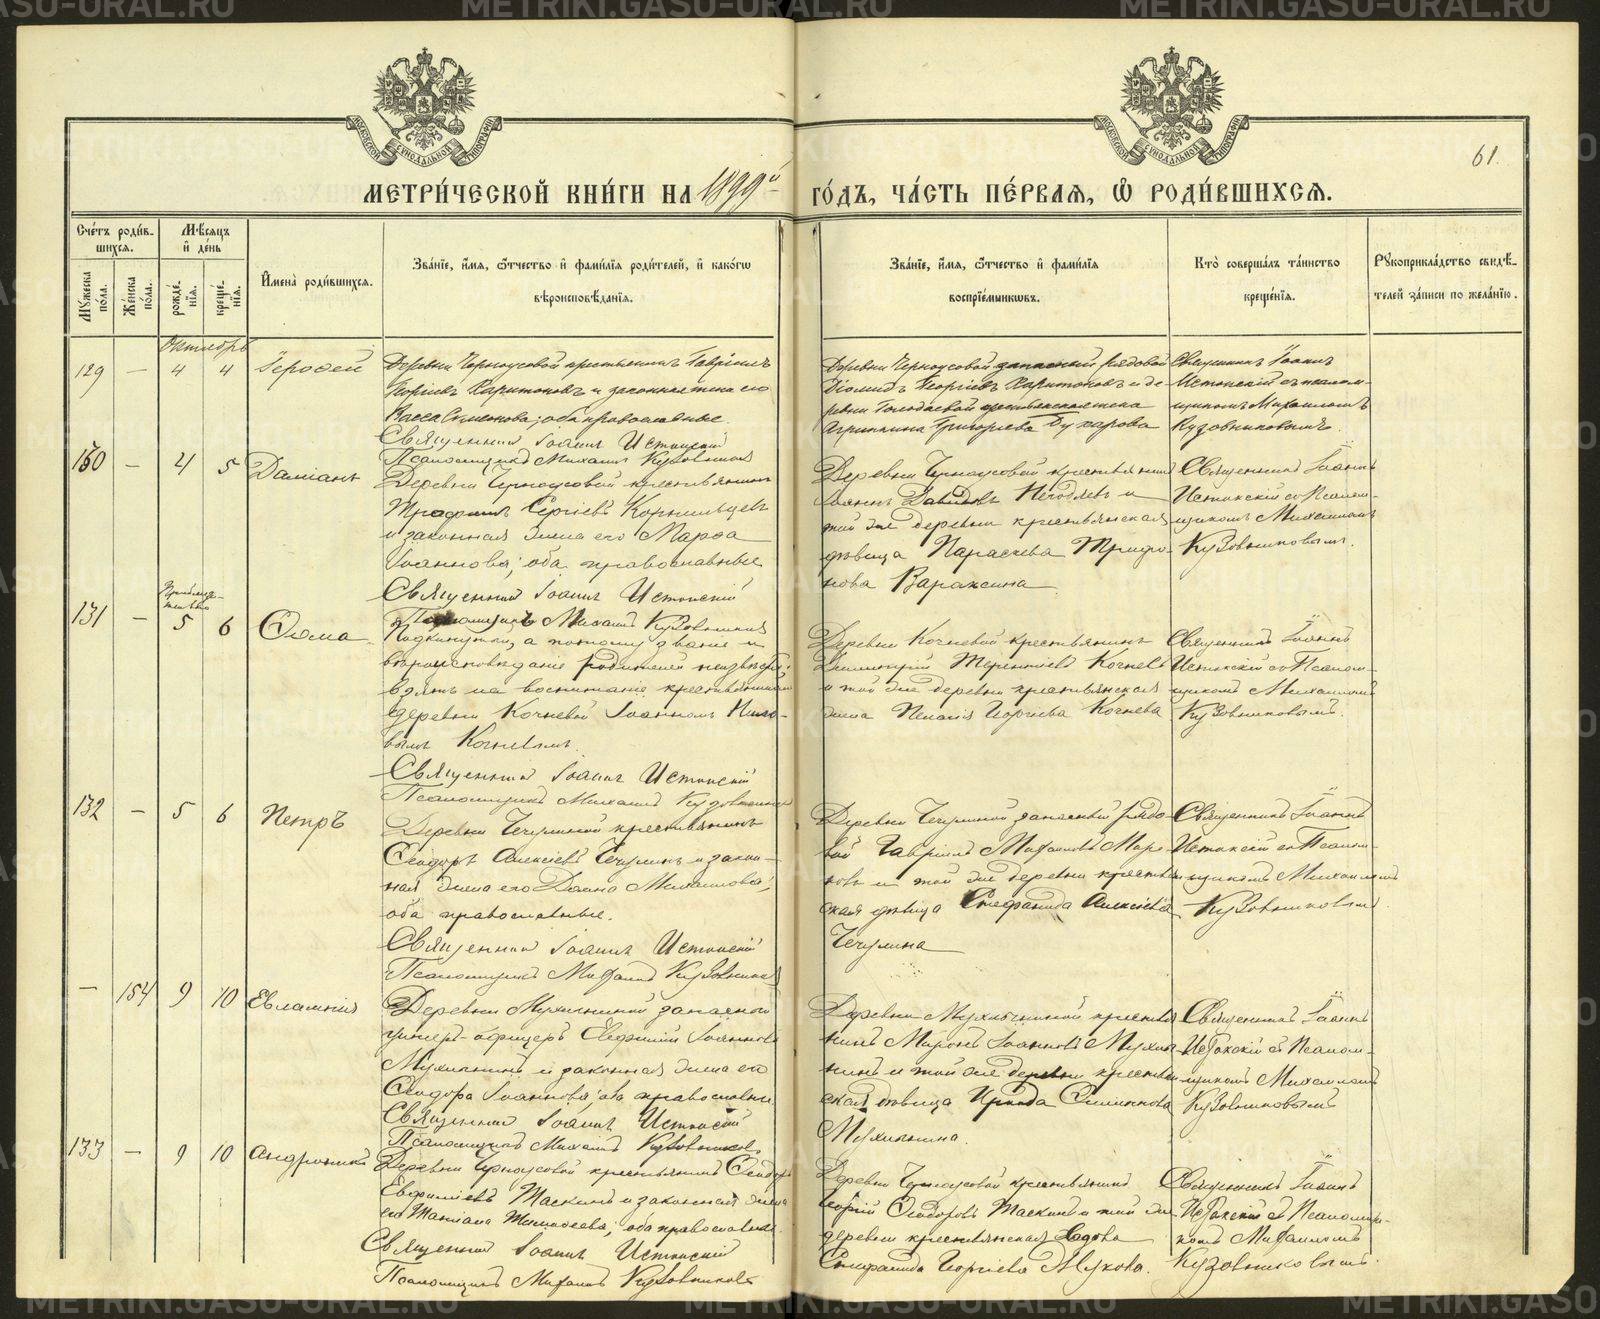 METRIKI.GASU-URAL.RU
МОСКОВСКОЙ СѴНОДАЛЬНОЙ ТИПОГРАФІИ
МОСКОВСКОЙ СѴНОДАЛЬНОЙ ТИПОГРАФІИ
61.
МЕТРИ́ЧЕСКОЙ КНИ́ГИ НА 1899й ГО́ДЪ, ЧА́СТЬ ПЕ́РВАЯ, Ѡ҆ РОДИ́ВШИХСЯ.
Сче́тъ роди́в-
шихся.
Мѣ́сяцъ
и҆ де́нь
Му́жеска по́ла.
Же́нска по́ла.
рожде́нїя.
креще́нїя.
И҆мена̀ роди́вшихся.
Зва́нїе, и҆́мя, ѻ҆́тчество и҆ фами́лїя роди́телей, и҆ како́гѡ
вѣроисповѣ́данїя.
Зва́нїе, и҆́мя, ѻ҆́тчество и҆ фами́лїя
воспрїе́мникѡвъ.
Кто̀ соверша́лъ та́инство
креще́нїя.
Рꙋкоприкла́дство свидѣ́-
телей за́писи по жела́нїю.
Октябрь
129 — 4 4 Іероѳей
Деревни Черноусовой крестьянинъ Гавріилъ
Георгіевъ Харитоновъ и законная жена его
Васса Симонова; оба православные.
Священникъ Іоаннъ Истокскій
Псаломщикъ Михаилъ Кузовниковъ
Деревни Черноусовой запасный рядовой
Діомидъ Георгіевъ Харитоновъ и де-
ревни крестьянская жена
Агриппина Григорьева
Священникъ Іоаннъ
Истокскій съ псалом-
щикомъ Михаиломъ
Кузовниковымъ.
130 — 4 5 Даміанъ
Деревни Черноусовой крестьянинъ
Трофимъ Сергіевъ Корнильцевъ
и законная жена его Марѳа
Іоаннова; оба православные
Священникъ Іоаннъ Истокскій
Псаломщикъ Михаилъ Кузовниковъ
Деревни Черноусовой крестьянинъ
Іоаннъ Давидовъ и
той же деревни крестьянская
дѣвица Параскева Трифо-
нова Вараксина
Священникъ Іоаннъ
Истокскій со Псалом-
щикомъ Михаиломъ
Кузовниковымъ.
131 — 5 6 Ѳома
Подкинутъ, а потому званіе и
вѣроисповѣданіе родителей неизвѣстны;
взятъ на воспитаніе крестьяниномъ
деревни Кочневой Іоанномъ
Кочневымъ.
Священникъ Іоаннъ Истокскій
Псаломщикъ Михаилъ Кузовниковъ
Деревни Кочневой крестьянинъ
Димитрій Терентіевъ Кочневъ
и той же деревни крестьянская
жена Пелагія Георгіева Кочнева
Священникъ Іоаннъ
Истокскій со Псалом-
щикомъ Михаиломъ
Кузовниковымъ.
132 — 5 6 Петръ
Деревни Чечулиной крестьянинъ
Ѳеодоръ Алексіевъ Чечулинъ и закон-
ная жена его Домна Михаилова;
оба православные.
Священникъ Іоаннъ Истокскій
Псаломщикъ Михаилъ Кузовниковъ
Деревни Чечулиной запасный рядо-
вой Гавріилъ Михаиловъ
и той же деревни крестьян-
ская дѣвица Стефанида Алексіева
Чечулина
Священникъ Іоаннъ
Истокскій со Псалом-
щикомъ Михаиломъ
Кузовниковымъ.
— 154 9 10 Евлампія
Деревни Мухлыниной запасной
унтеръ-офицеръ Евфимій Іоанновъ
Мухлынинъ и законная жена его
Ѳеодора Іоаннова; оба православны
Священникъ Іоаннъ Истокскій
Псаломщикъ Михаилъ Кузовниковъ
Деревни Мухлыниной крестья-
нинъ Миронъ Іоанновъ Мухлы-
нинъ и той же деревни крестьян-
ская дѣвица
Мухлынина.
Священникъ Іоаннъ
Истокскій съ Псалом-
щикомъ Михаиломъ
Кузовниковымъ
133 — 9 10 Андроникъ
Деревни Черноусовой крестьянинъ Ѳеодоръ
Евфиміевъ Таскинъ и законная жена
его Татіана Тимоѳеева; оба православные.
Священникъ Іоаннъ Истокскій
Псаломщикъ Михаилъ Кузовниковъ
Деревни Черноусовой крестьянинъ
Георгій Ѳеодоровъ Таскинъ и той же
деревни крестьянская вдова
Стефанида Георгіева
Священникъ Іоаннъ
Истокскій съ Псаломщи-
комъ Михаиломъ
Кузовниковымъ.